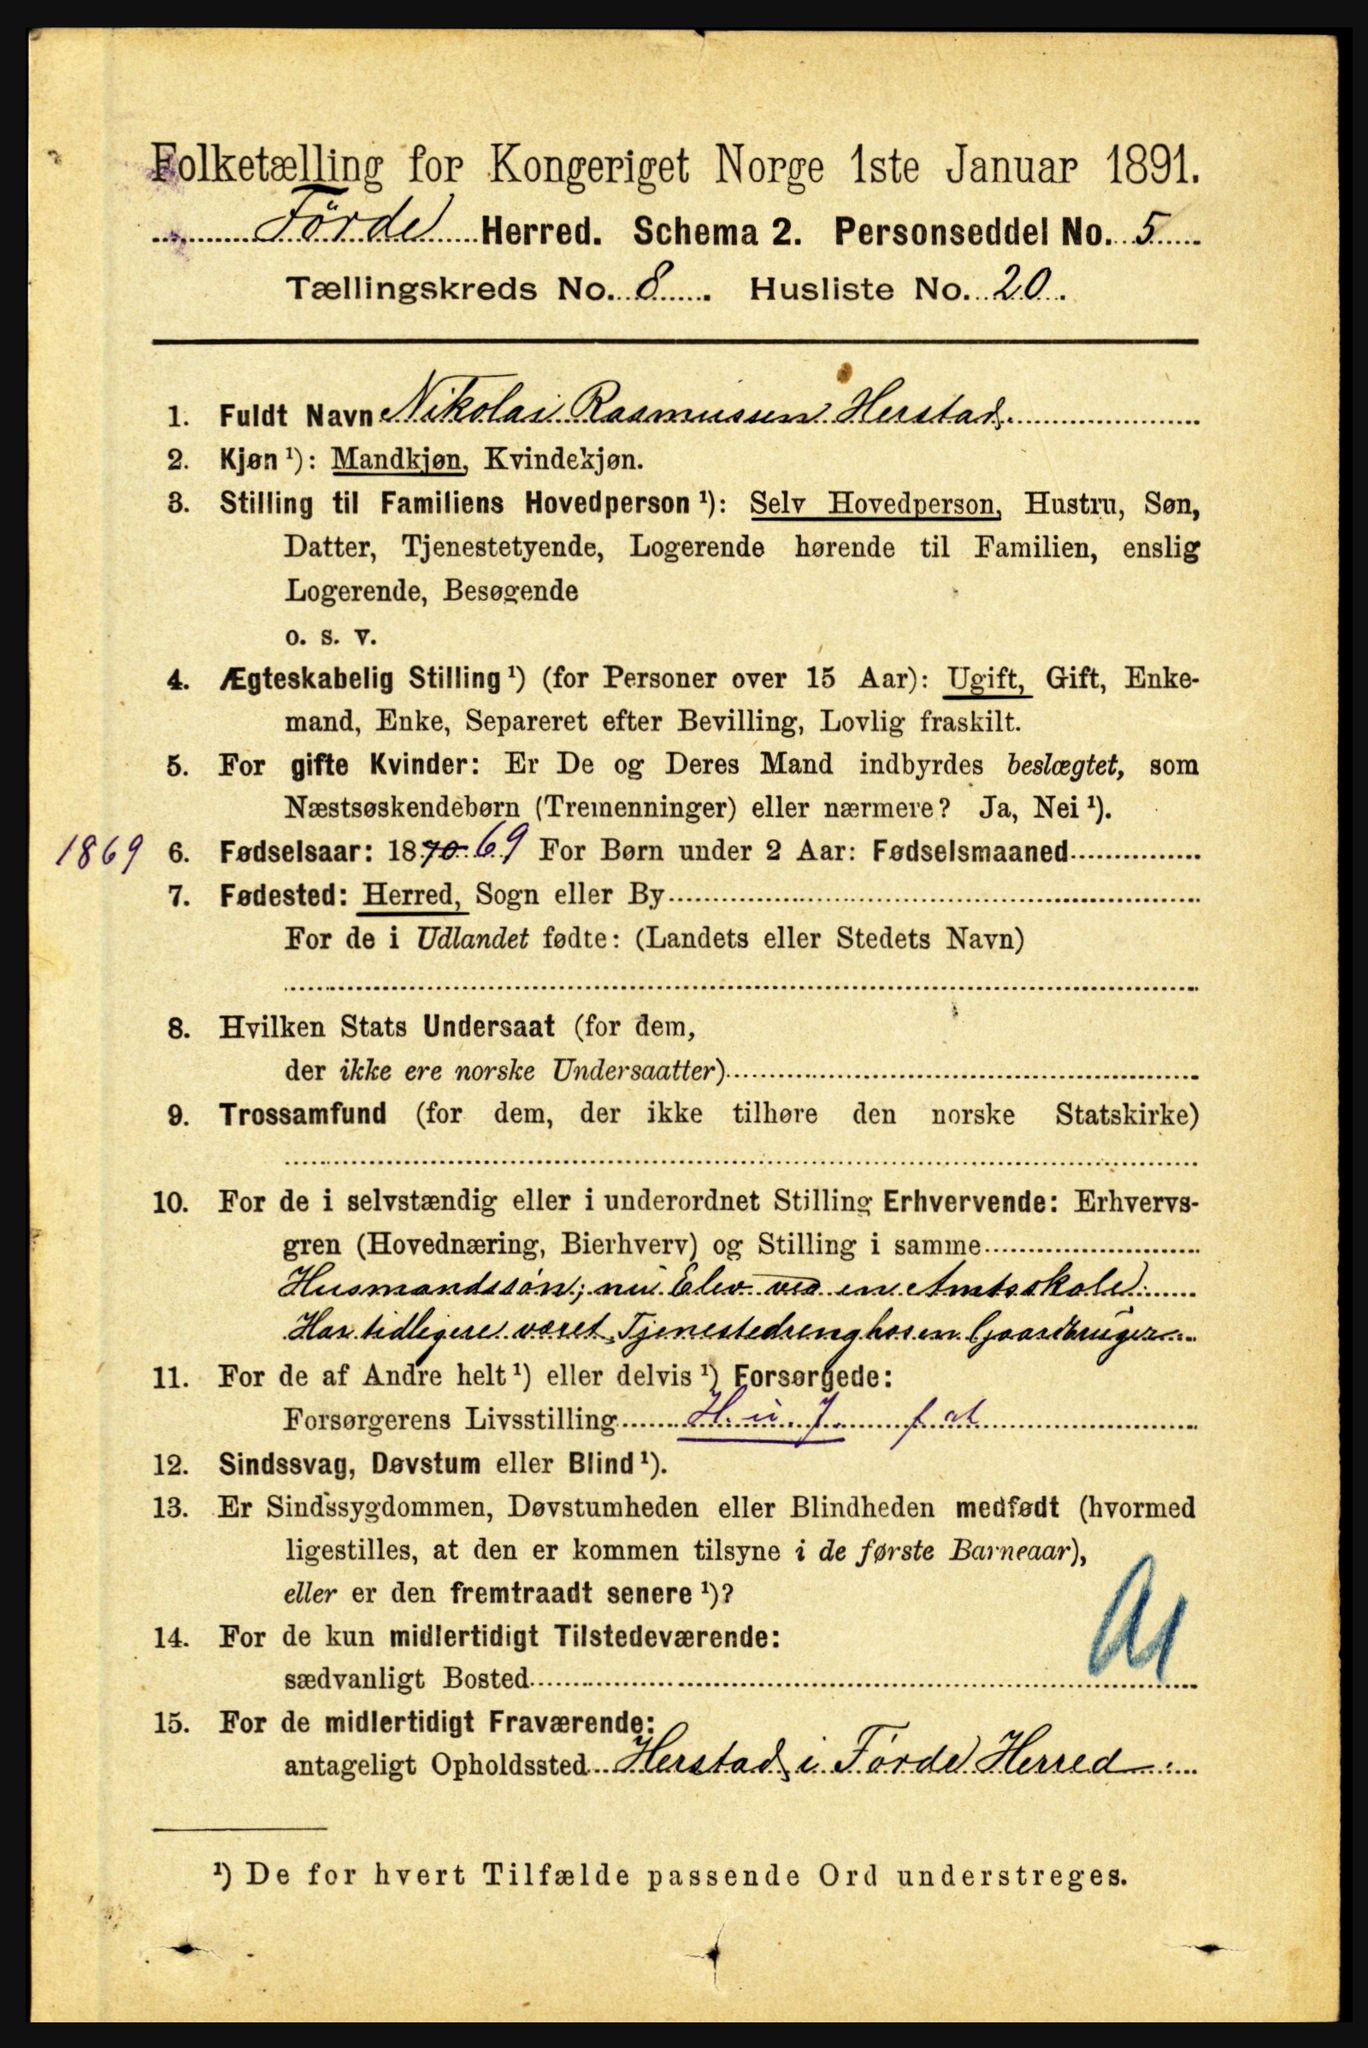 Folketælling for Kongeriget Norge 1ste Januar 1891.
Førde Herred. Schema 2. Personseddel No. 5
Tællingskreds No. 8 Husliste No. 20.
1. Fuldt Navn Nikolai Rasmussen Herstad.
2. Kjøn ¹): Mandkjøn, Kvindekjøn.
3. Stilling til Familiens Hovedperson ¹): Selv Hovedperson, Hustru, Søn,
Datter, Tjenestetyende, Logerende hørende til Familien, enslig
Logerende, Besøgende
o. s. v.
4. Ægteskabelig Stilling ¹) (for Personer over 15 Aar): Ugift, Gift, Enke-
mand, Enke, Separeret efter Bevilling, Lovlig fraskilt.
5. For gifte Kvinder: Er De og Deres Mand indbyrdes beslægtet, som
Næstsøskendebørn (Tremenninger) eller nærmere? Ja, Nei ¹).
1869 6. Fødselsaar: 1870 69 For Børn under 2 Aar: Fødselsmaaned
7. Fødested: Herred, Sogn eller By
For de i Udlandet fødte: (Landets eller Stedets Navn)
8. Hvilken Stats Undersaat (for dem,
der ikke ere norske Undersaatter)
9. Trossamfund (for dem, der ikke tilhøre den norske Statskirke)
10. For de i selvstændig eller i underordnet Stilling Erhvervende: Erhvervs-
gren (Hovednæring, Bierhverv) og Stilling i samme
Husmandssøn; nu Elev ved en Amtsskole.
Har tidligere været Tjenestedreng hos en Gaardbruger.
11. For de af Andre helt ¹) eller delvis ¹) Forsørgede:
Forsørgerens Livsstilling
12. Sindssvag, Døvstum eller Blind ¹).
13. Er Sindssygdommen, Døvstumheden eller Blindheden medfødt (hvormed
ligestilles, at den er kommen tilsyne i de første Barneaar),
eller er den fremtraadt senere ¹)?
14. For de kun midlertidigt Tilstedeværende:
sædvanligt Bosted
15. For de midlertidigt Fraværende:
antageligt Opholdssted Herstad i Førde Herred
¹) De for hvert Tilfælde passende Ord understreges.